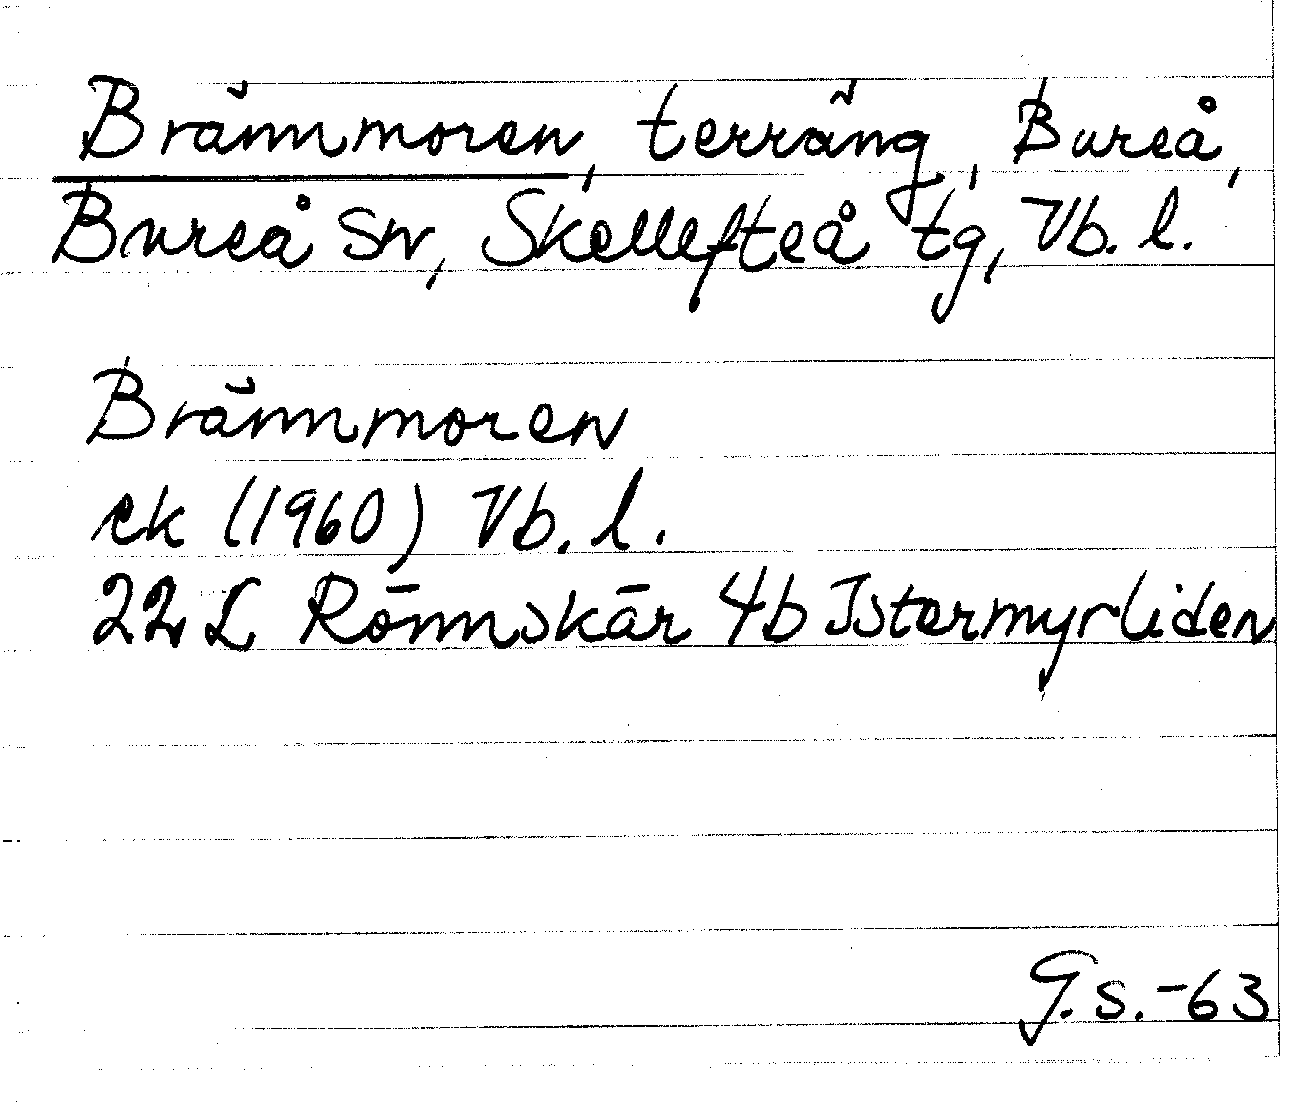 Brännmoren, terräng, Bureå,
Bureå sn, Skellefteå tg, Vb. l.
Brännmoren
ek (1960) Vb. l.
22 L Rönnskär 4b Istermyrliden
G.S.-63